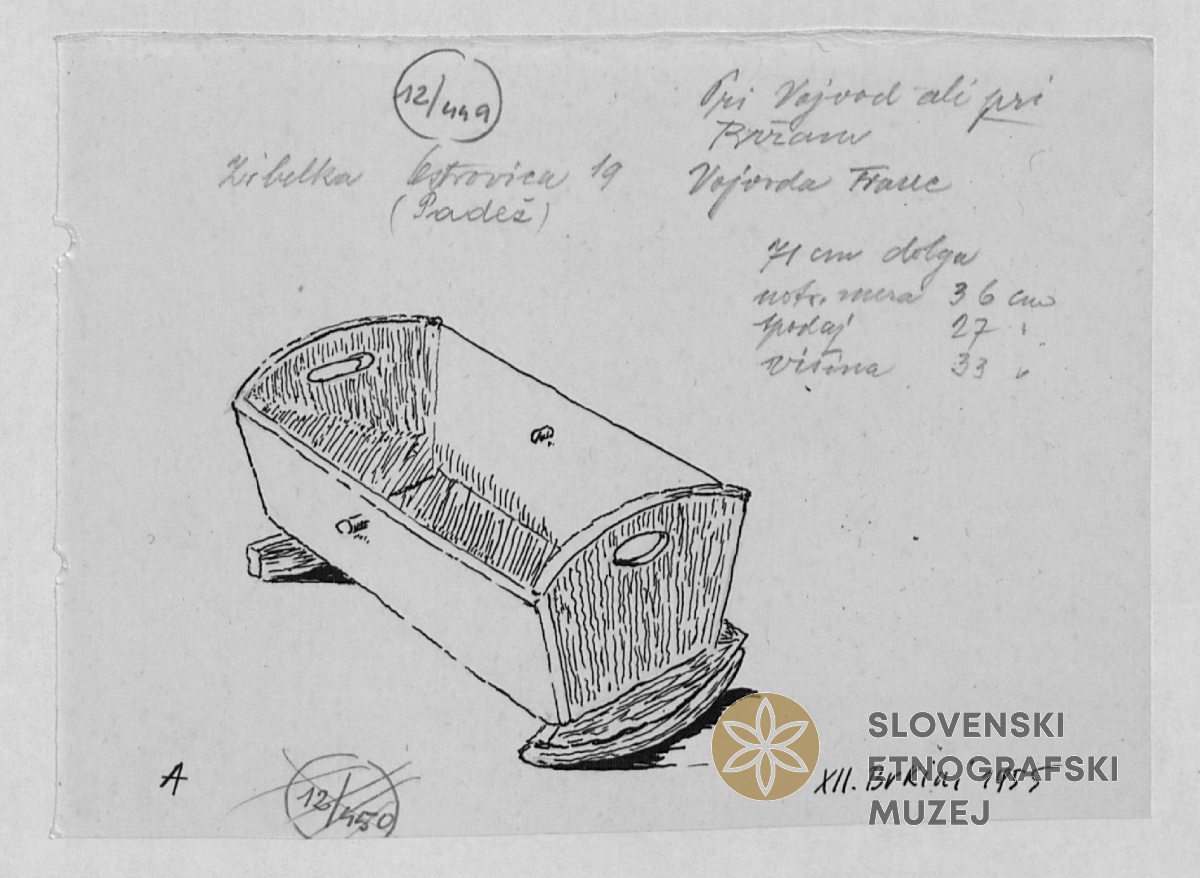 12/449
Pri Vojvod ali pri
Zibelka Ostrovica 19
(Padež)
Vojvoda Franc
71 cm dolga
notr. mera 36 cm
spodaj 27 "
višina 33 "
A
12/450
XII. Brkini 1955
SLOVENSKI
ETNOGRAFSKI
MUZEJ